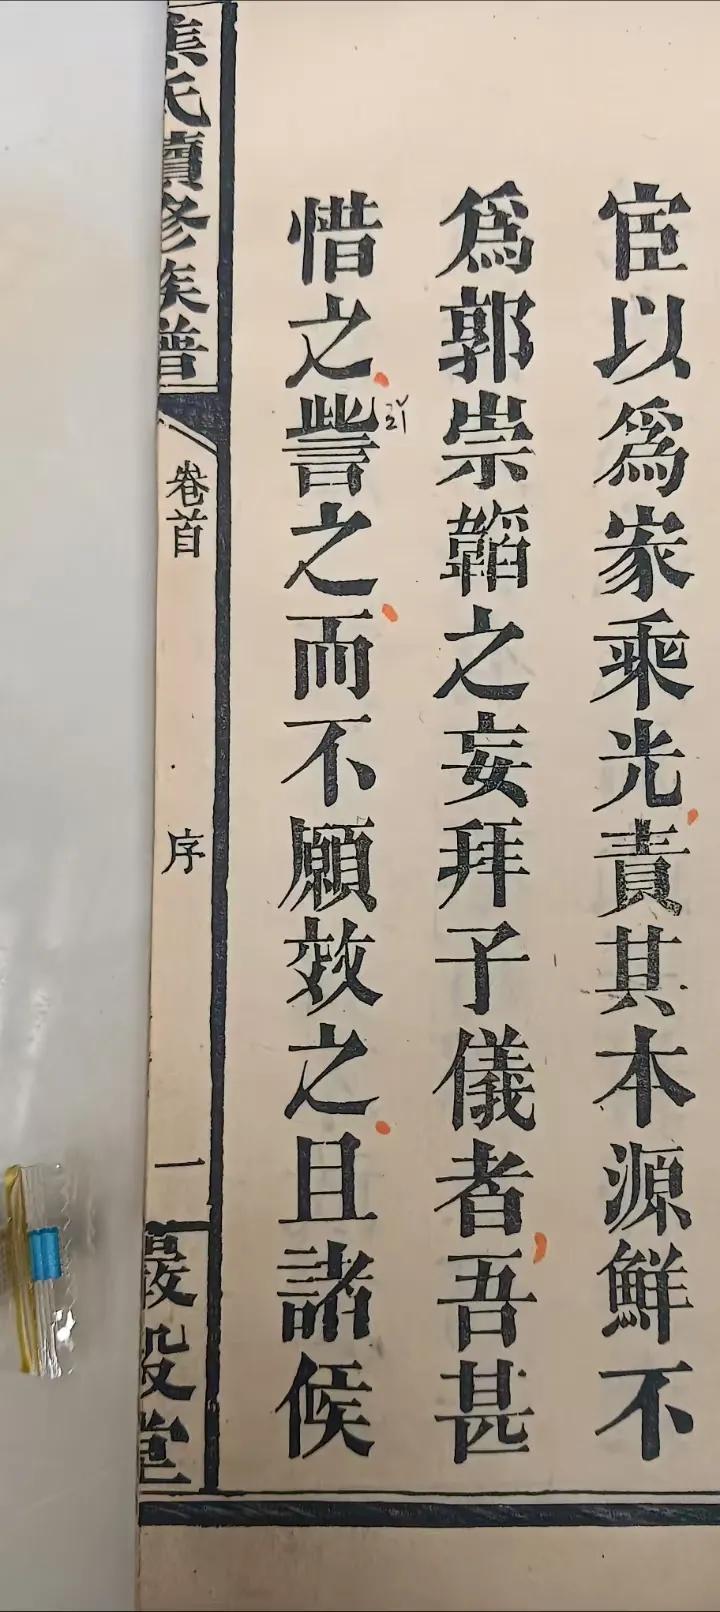 宦以爲家乘光責其本源鮮不
爲郭崇韜之妄拜子儀者吾甚
惜之訾之而不願效之且諸侯
zǐ
焦氏續修族譜
卷首
序
一